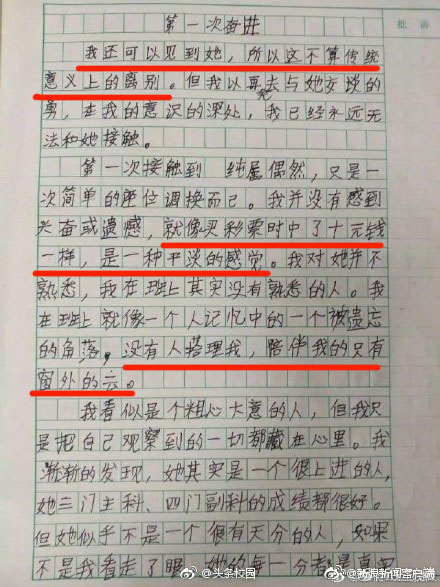 第一次奋进
批语
我还可以见到她，所以这不算传统
意义上的离别。但我以再去与她交谈的
勇，在我的意识的深处，我已经永远无
法和她接触。
第一次接触到 纯属偶然，只是一
次简单的座位调换而已。我并没有感到
兴奋或遗憾，就像买彩票时中了十元钱
一样，是一种平淡的感觉。我对她并不
熟悉，我在班上其实没有熟悉的人。我
在班上就像一个人记忆中的一个被遗忘
的角落，没有人搭理我，陪伴我的只有
窗外的云。
我看似是个粗心大意的人，但我只
是把自己观察到的一切都藏在心里。我
渐渐的发现，她其实是一个很上进的人，
她三门主科、四门副科的成绩都很好。
但她似乎不是一个很有天分的人，如果
不是我看走了眼，她的每一分都是真
@头条校园
@新浪新闻客户端